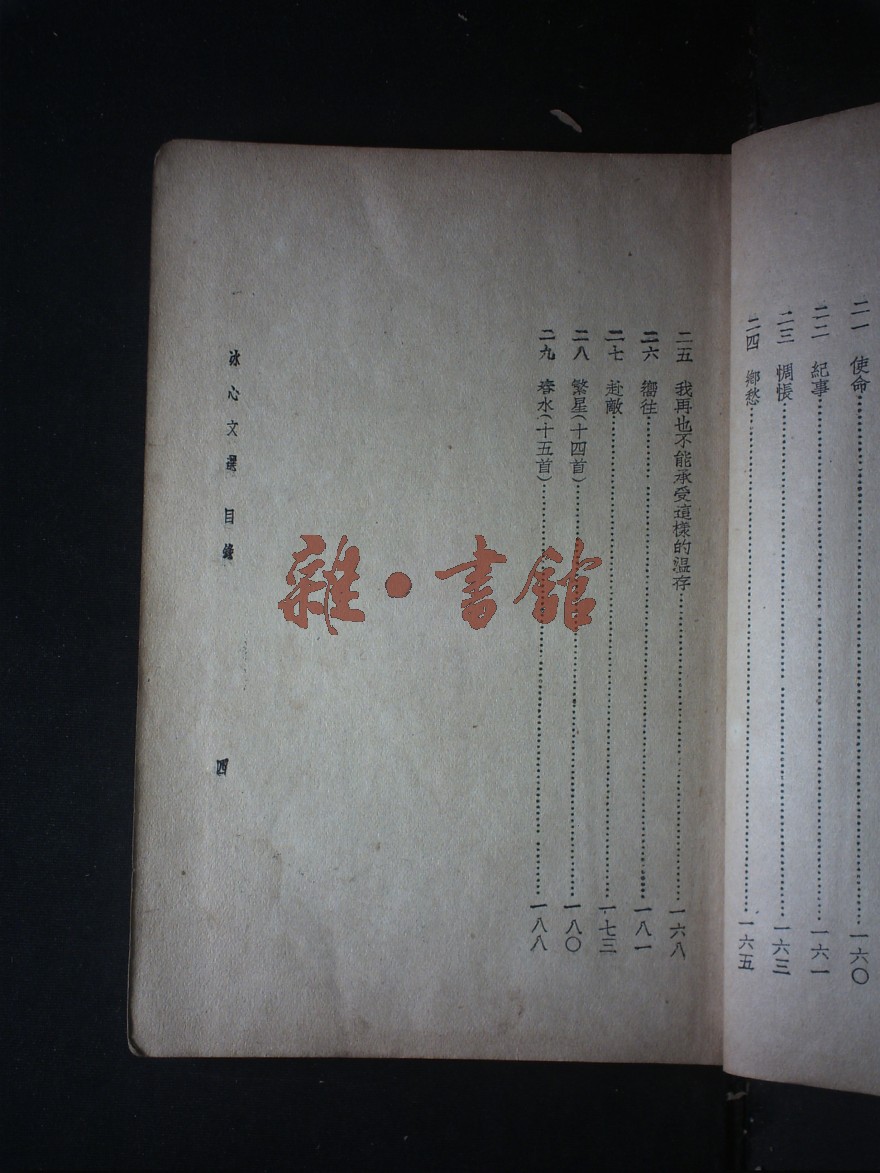 二一 使命……一六〇
二二 紀事……一六一
二三 惆悵……一六三
二四 鄉愁……一六五
二五 我再也不能承受這樣的溫存……一六八
二六 嚮往……一八一
二七 赴敵……一七三
二八 繁星(十四首)……一八〇
二九 春水(十五首)……一八八
冰心文選 目錄
四
雜·書館